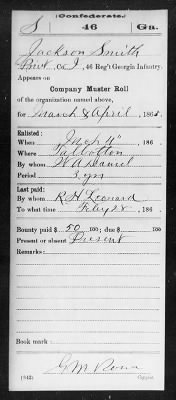 (Confederate.)
S 46 Ga.
Jackson Smith
Priv, Co. I, 46 Reg't Georgia Infantry.
Appears on
Company Muster Roll
of the organization named above,
for March & April, 186
Enlisted:
When Mch 4", 186
Where Talbotton
By whom W A Daniel
Period 3 yrs
Last paid:
By whom R. H. Leonard
To what time Feby 28, 186
Bounty paid $ 50 100; due $ 100
Present or absent Present
Remarks:
Book mark:
G M
(642) Copyist.